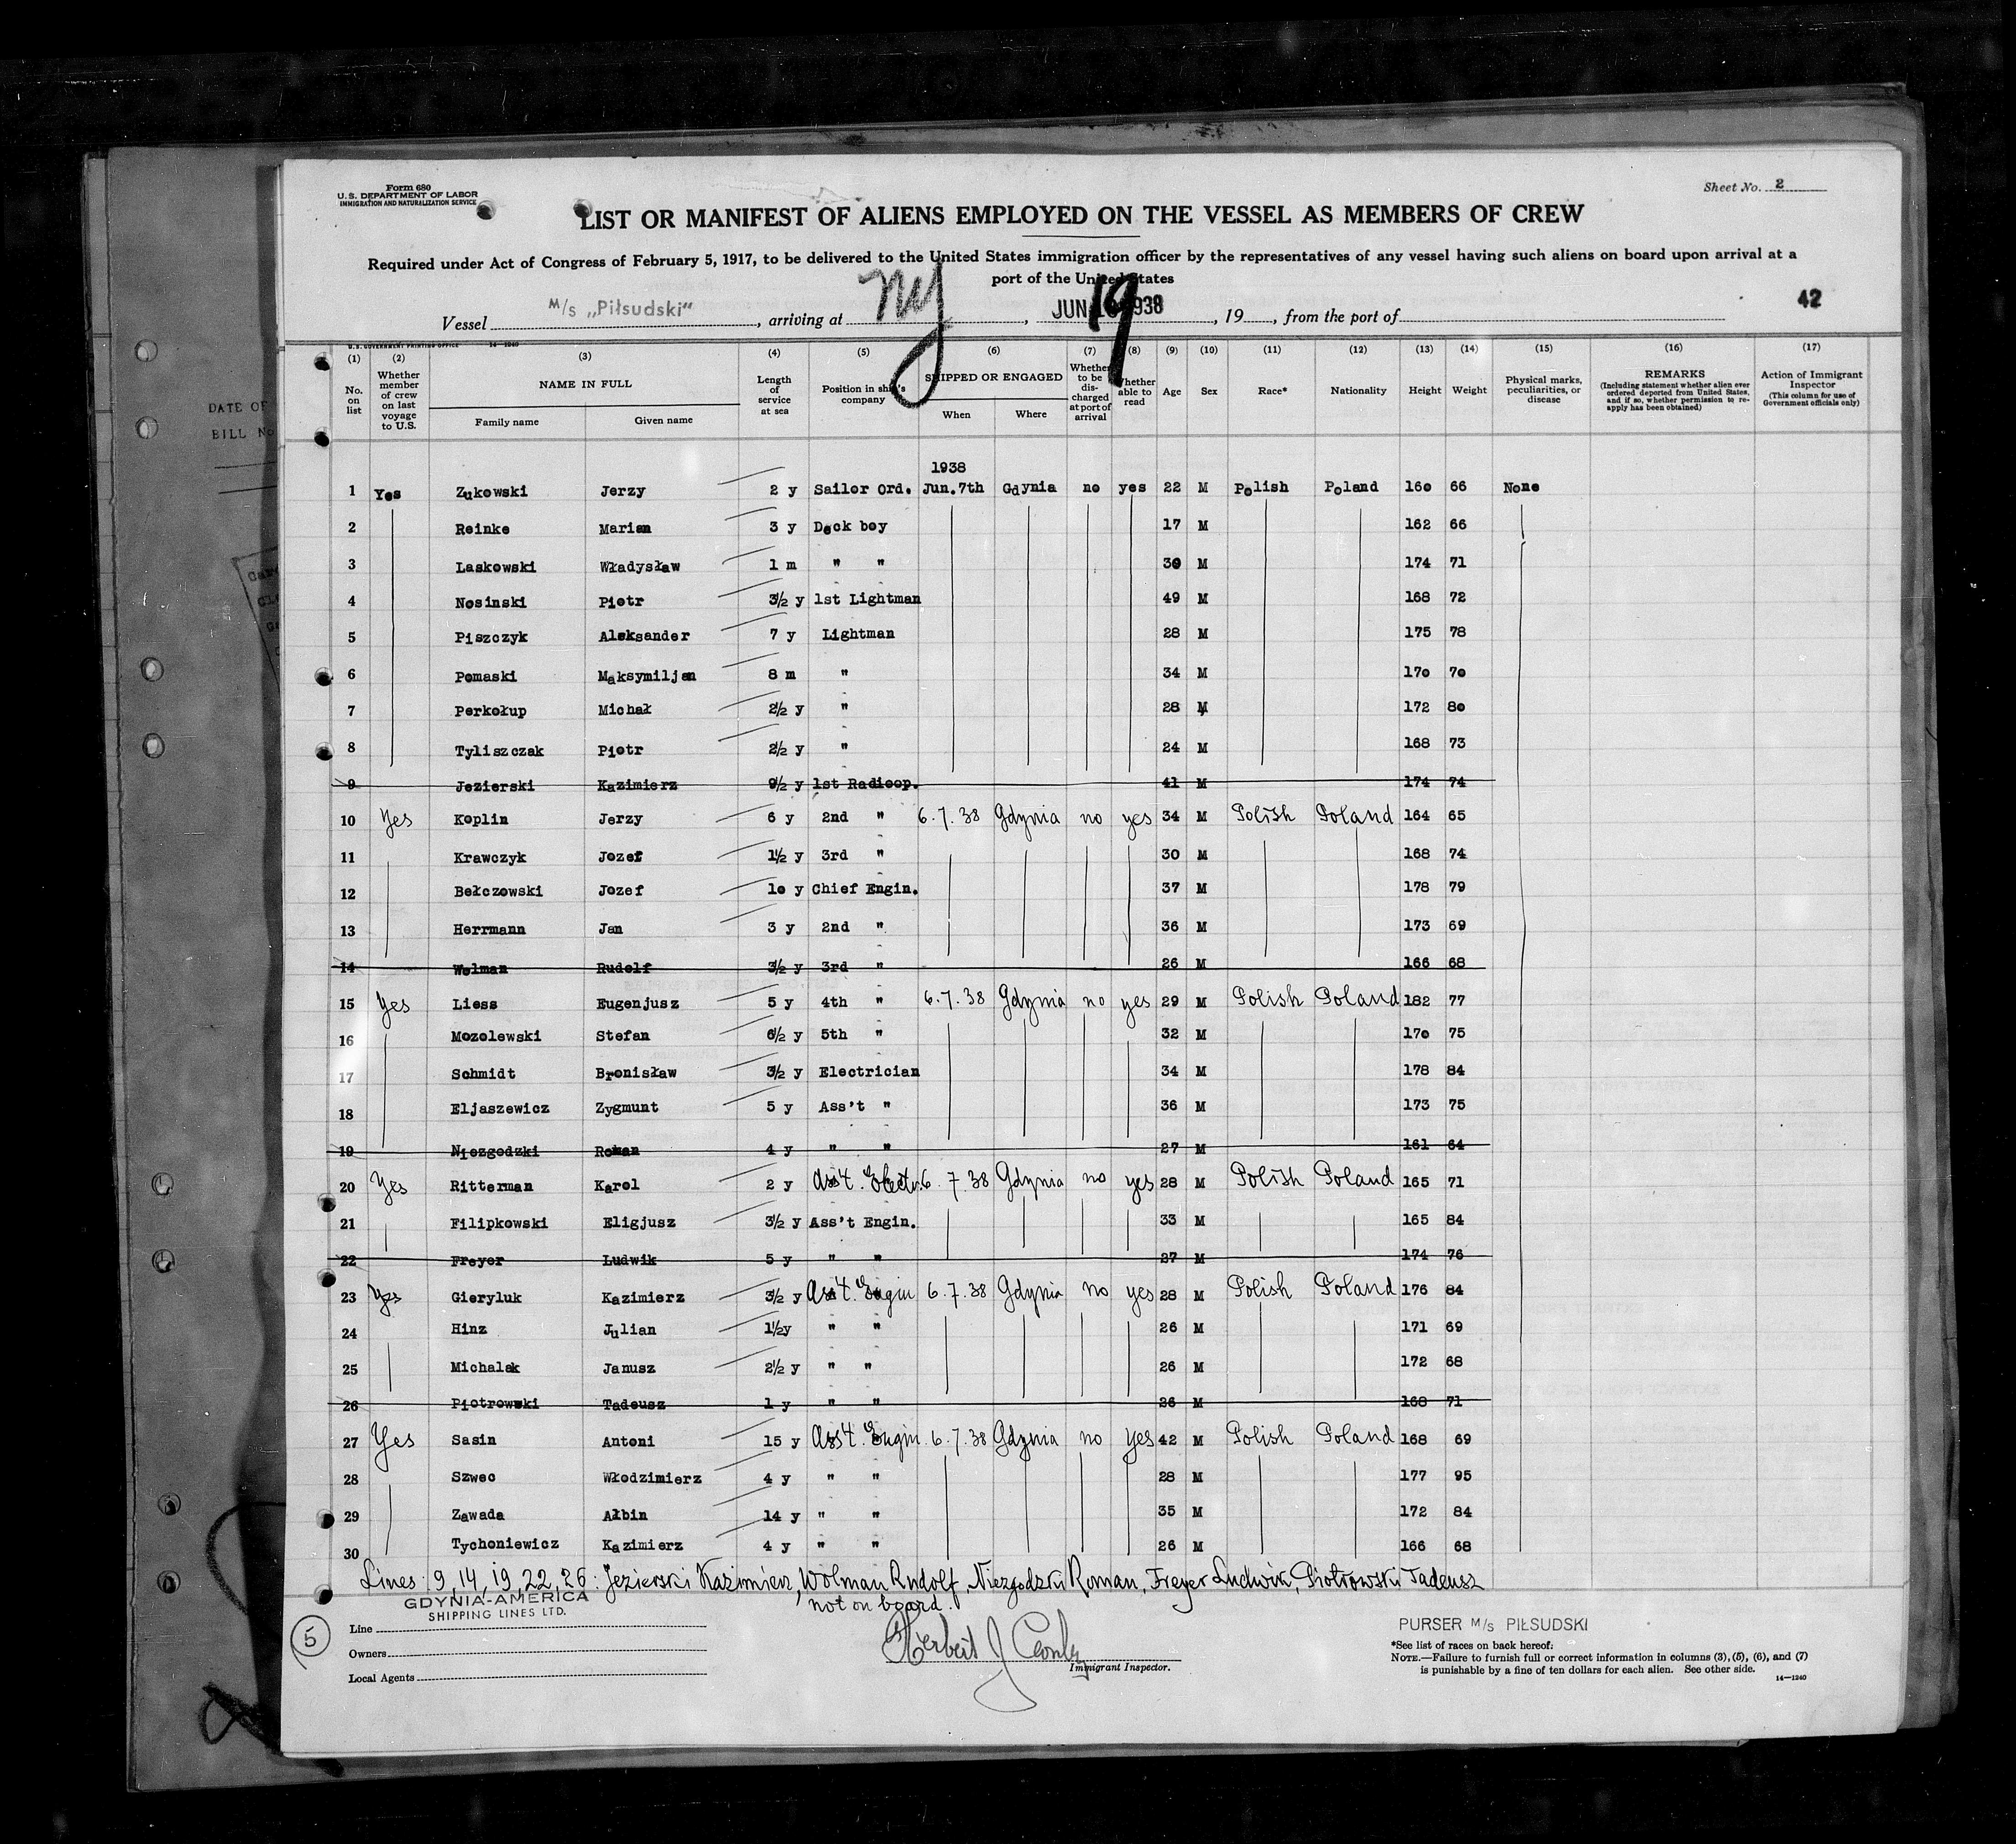 Form 680
U. S. DEPARTMENT OF LABOR
IMMIGRATION AND NATURALIZATION SERVICE
Sheet No. 2
LIST OR MANIFEST OF ALIENS EMPLOYED ON THE VESSEL AS MEMBERS OF CREW
Required under Act of Congress of February 5, 1917, to be delivered to the United States immigration officer by the representatives of any vessel having such aliens on board upon arrival at a
port of the United States
42
Vessel M/s „Piłsudski“, arriving at NY, JUN 19 1938, 19, from the port of
U. S. GOVERNMENT PRINTING OFFICE 14—1240
DATE OF
BILL No
(1) (2) (3) (4) (5) (6) (7) (8) (9) (10) (11) (12) (13) (14) (15) (16) (17)
No. on list
Whether member of crew on last voyage to U.S.
NAME IN FULL
Family name
Given name
Length of service at sea
Position in ship's company
SHIPPED OR ENGAGED
When
Where
Whether to be discharged at port of arrival
Whether able to read
Age
Sex
Race*
Nationality
Height
Weight
Physical marks, peculiarities, or disease
REMARKS
(Including statement whether alien ever ordered deported from United States, and if so, whether permission to reapply has been obtained)
Action of Immigrant Inspector
(This column for use of Government officials only)
1938
1 Yes Zukowski Jerzy 2 y Sailor Ord. Jun.7th Gdynia no yes 22 M Polish Poland 160 66 None
2 Reinke Marian 3 y Deck boy 17 M 162 66
3 Laskowski Władysław 1 m " " 30 M 174 71
4 Nosinski Piotr 3½ y 1st Lightman 49 M 168 72
5 Piszczyk Aleksander 7 y Lightman 28 M 175 78
6 Pomaski Maksymiljan 8 m " 34 M 170 70
7 Perkołup Michał 2½ y " 28 M 172 80
8 Tyliszczak Piotr 2½ y " 24 M 168 73
9 Jezierski Kazimierz 9½ y 1st Radioop. 41 M 174 74
10 Yes Koplin Jerzy 6 y 2nd " 6.7.38 Gdynia no yes 34 M Polish Poland 164 65
11 Krawczyk Jozef 1½ y 3rd " 30 M 168 74
12 Bełczowski Jozef 10 y Chief Engin. 37 M 178 79
13 Herrmann Jan 3 y 2nd " 36 M 173 69
14 Wolman Rudolf 3½ y 3rd " 26 M 166 68
15 Yes Liess Eugenjusz 5 y 4th " 6.7.38 Gdynia no yes 29 M Polish Poland 182 77
16 Mozolewski Stefan 6½ y 5th " 32 M 170 75
17 Schmidt Bronisław 3½ y Electrician 34 M 178 84
18 Eljaszewicz Zygmunt 5 y Ass't " 36 M 173 75
19 Niezgodzki Roman 4 y " " 27 M 161 64
20 Yes Ritterman Karol 2 y Ass't. Electr. 6.7.38 Gdynia no yes 28 M Polish Poland 165 71
21 Filipkowski Eligjusz 3½ y Ass't Engin. 33 M 165 84
22 Freyer Ludwik 5 y " " 27 M 174 76
23 Yes Gieryluk Kazimierz 3½ y Ass't. Engin 6.7.38 Gdynia no yes 28 M Polish Poland 176 84
24 Hinz Julian 1½y " " 26 M 171 69
25 Michalak Janusz 2½ y " " 26 M 172 68
26 Piotrowski Tadeusz 1 y " " 26 M 168 71
27 Yes Sasin Antoni 15 y Ass't. Engin. 6.7.38 Gdynia no yes 42 M Polish Poland 168 69
28 Szwec Włodzimierz 4 y " " 28 M 177 95
29 Zawada Ałbin 14 y " " 35 M 172 84
30 Tychoniewicz Kazimierz 4 y " " 26 M 166 68
Lines: 9, 14, 19, 22, 26: Jezierski Kazimierz, Wolman Rudolf, Niezgodzki Roman, Freyer Ludwik, Piotrowski Tadeusz
not on board.
GDYNIA-AMERICA
SHIPPING LINES LTD.
5
Line
Owners
Local Agents
Herbert J
Immigrant Inspector.
PURSER M/s PIŁSUDSKI
*See list of races on back hereof:
NOTE.—Failure to furnish full or correct information in columns (3), (5), (6), and (7)
is punishable by a fine of ten dollars for each alien. See other side.
14—1240